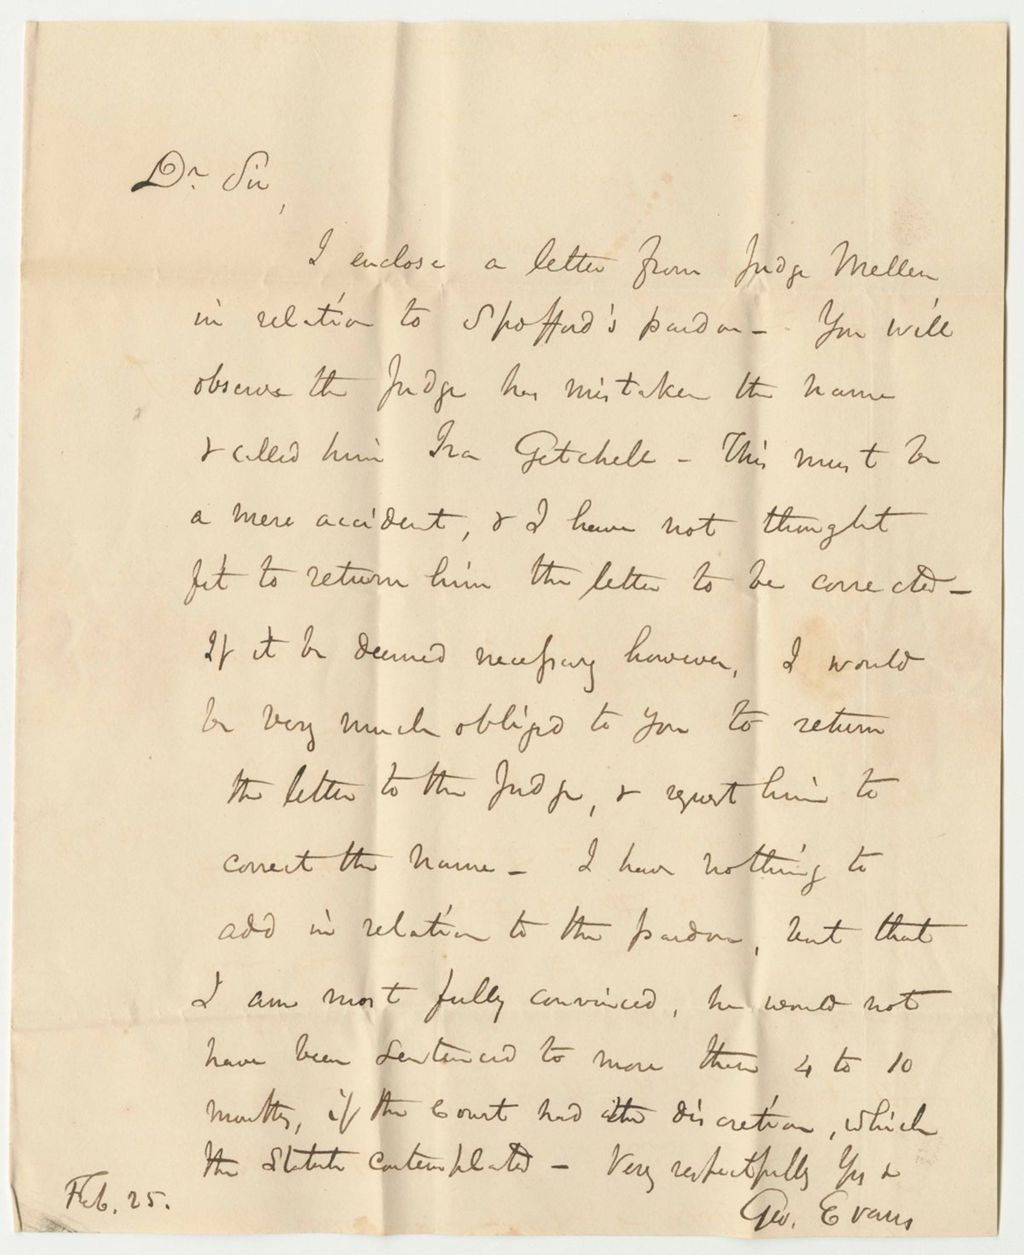 Dr. Sir,
I enclose a letter from Judge Mellen
in relation to Spofford's pardon – You will
observe the Judge has mistaken the name
& called him Ira Getchell – This must be
a mere accident, & I have not thought
fit to return him the letter to be corrected –
If it be deemed necessary however, I would
be very much obliged to you to return
the letter to the Judge, & request him to
correct the name – I have nothing to
add in relation to the pardon, but that
I am most fully convinced, he would not
have been sentenced to more than 4 to 10
months, if the Court had the discretion, which
the Statute contemplated – Very respectfully Yrs &
Geo. Evans
Feb. 25.